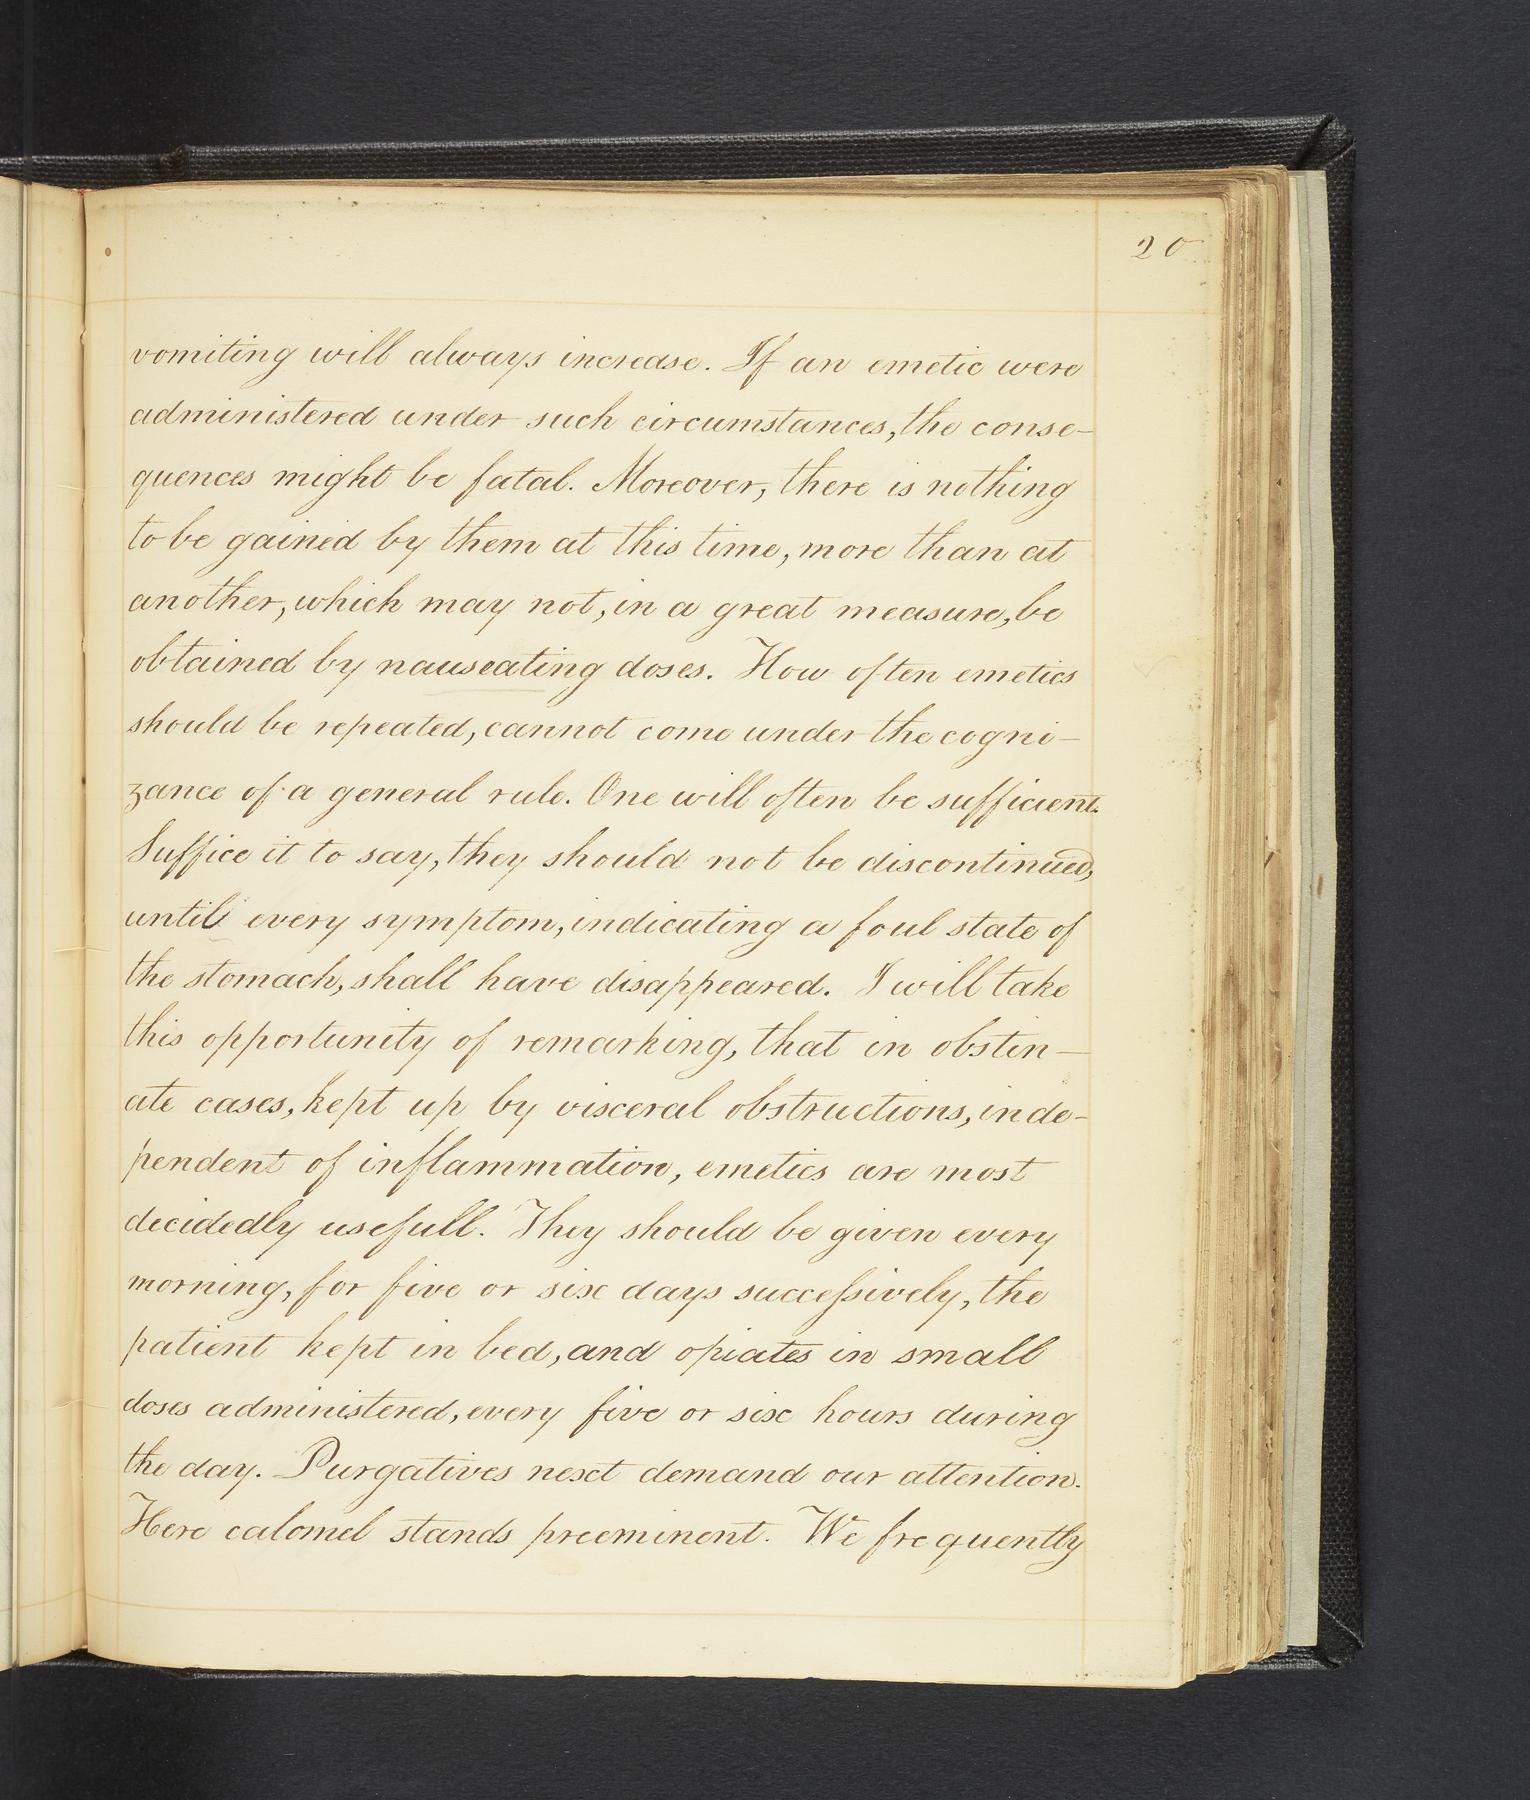 20
vomiting will always increase. If an emetic were
administered under such circumstances, the conse-
quences might be fatal. Moreover, there is nothing
to be gained by them at this time, more than at
another, which may not, in a great measure, be
obtained by nauseating doses. How often emetics
should be repeated, cannot come under the cogni-
zance of a general rule. One will often be sufficient.
Suffice it to say, they should not be discontinued,
until every symptom, indicating a foul state of
the stomach, shall have disappeared. I will take
this opportunity of remarking, that in obstin-
ate cases, kept up by visceral obstructions, inde-
pendent of inflammation, emetics are most
decidedly usefull. They should be given every
morning, for five or six days succeſsively, the
patient kept in bed, and opiates in small
doses administered, every five or six hours during
the day. Purgatives next demand our attention.
Here calomel stands preeminent. We frequently